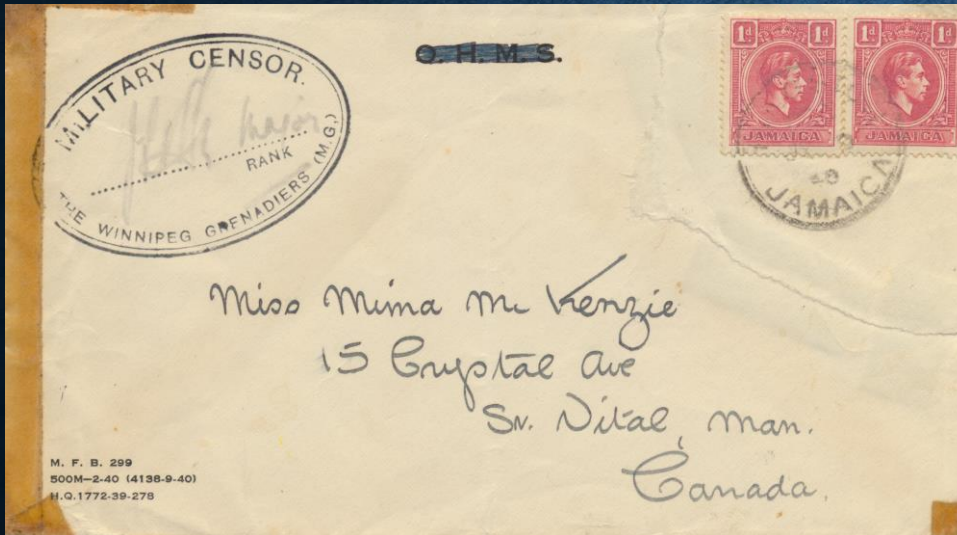 O. H. M. S.
MILITARY CENSOR.
Major
RANK
THE WINNIPEG GRENADIERS (M.G.)
1d 1d
JAMAICA
1d 1d
JAMAICA
40
JAMAICA
Miss Mima Mc Kenzie
15 Crystal Ave
St. Vital, Man.
Canada.
M. F. B. 299
500M—2-40 (4138-9-40)
H.Q.1772-39-278